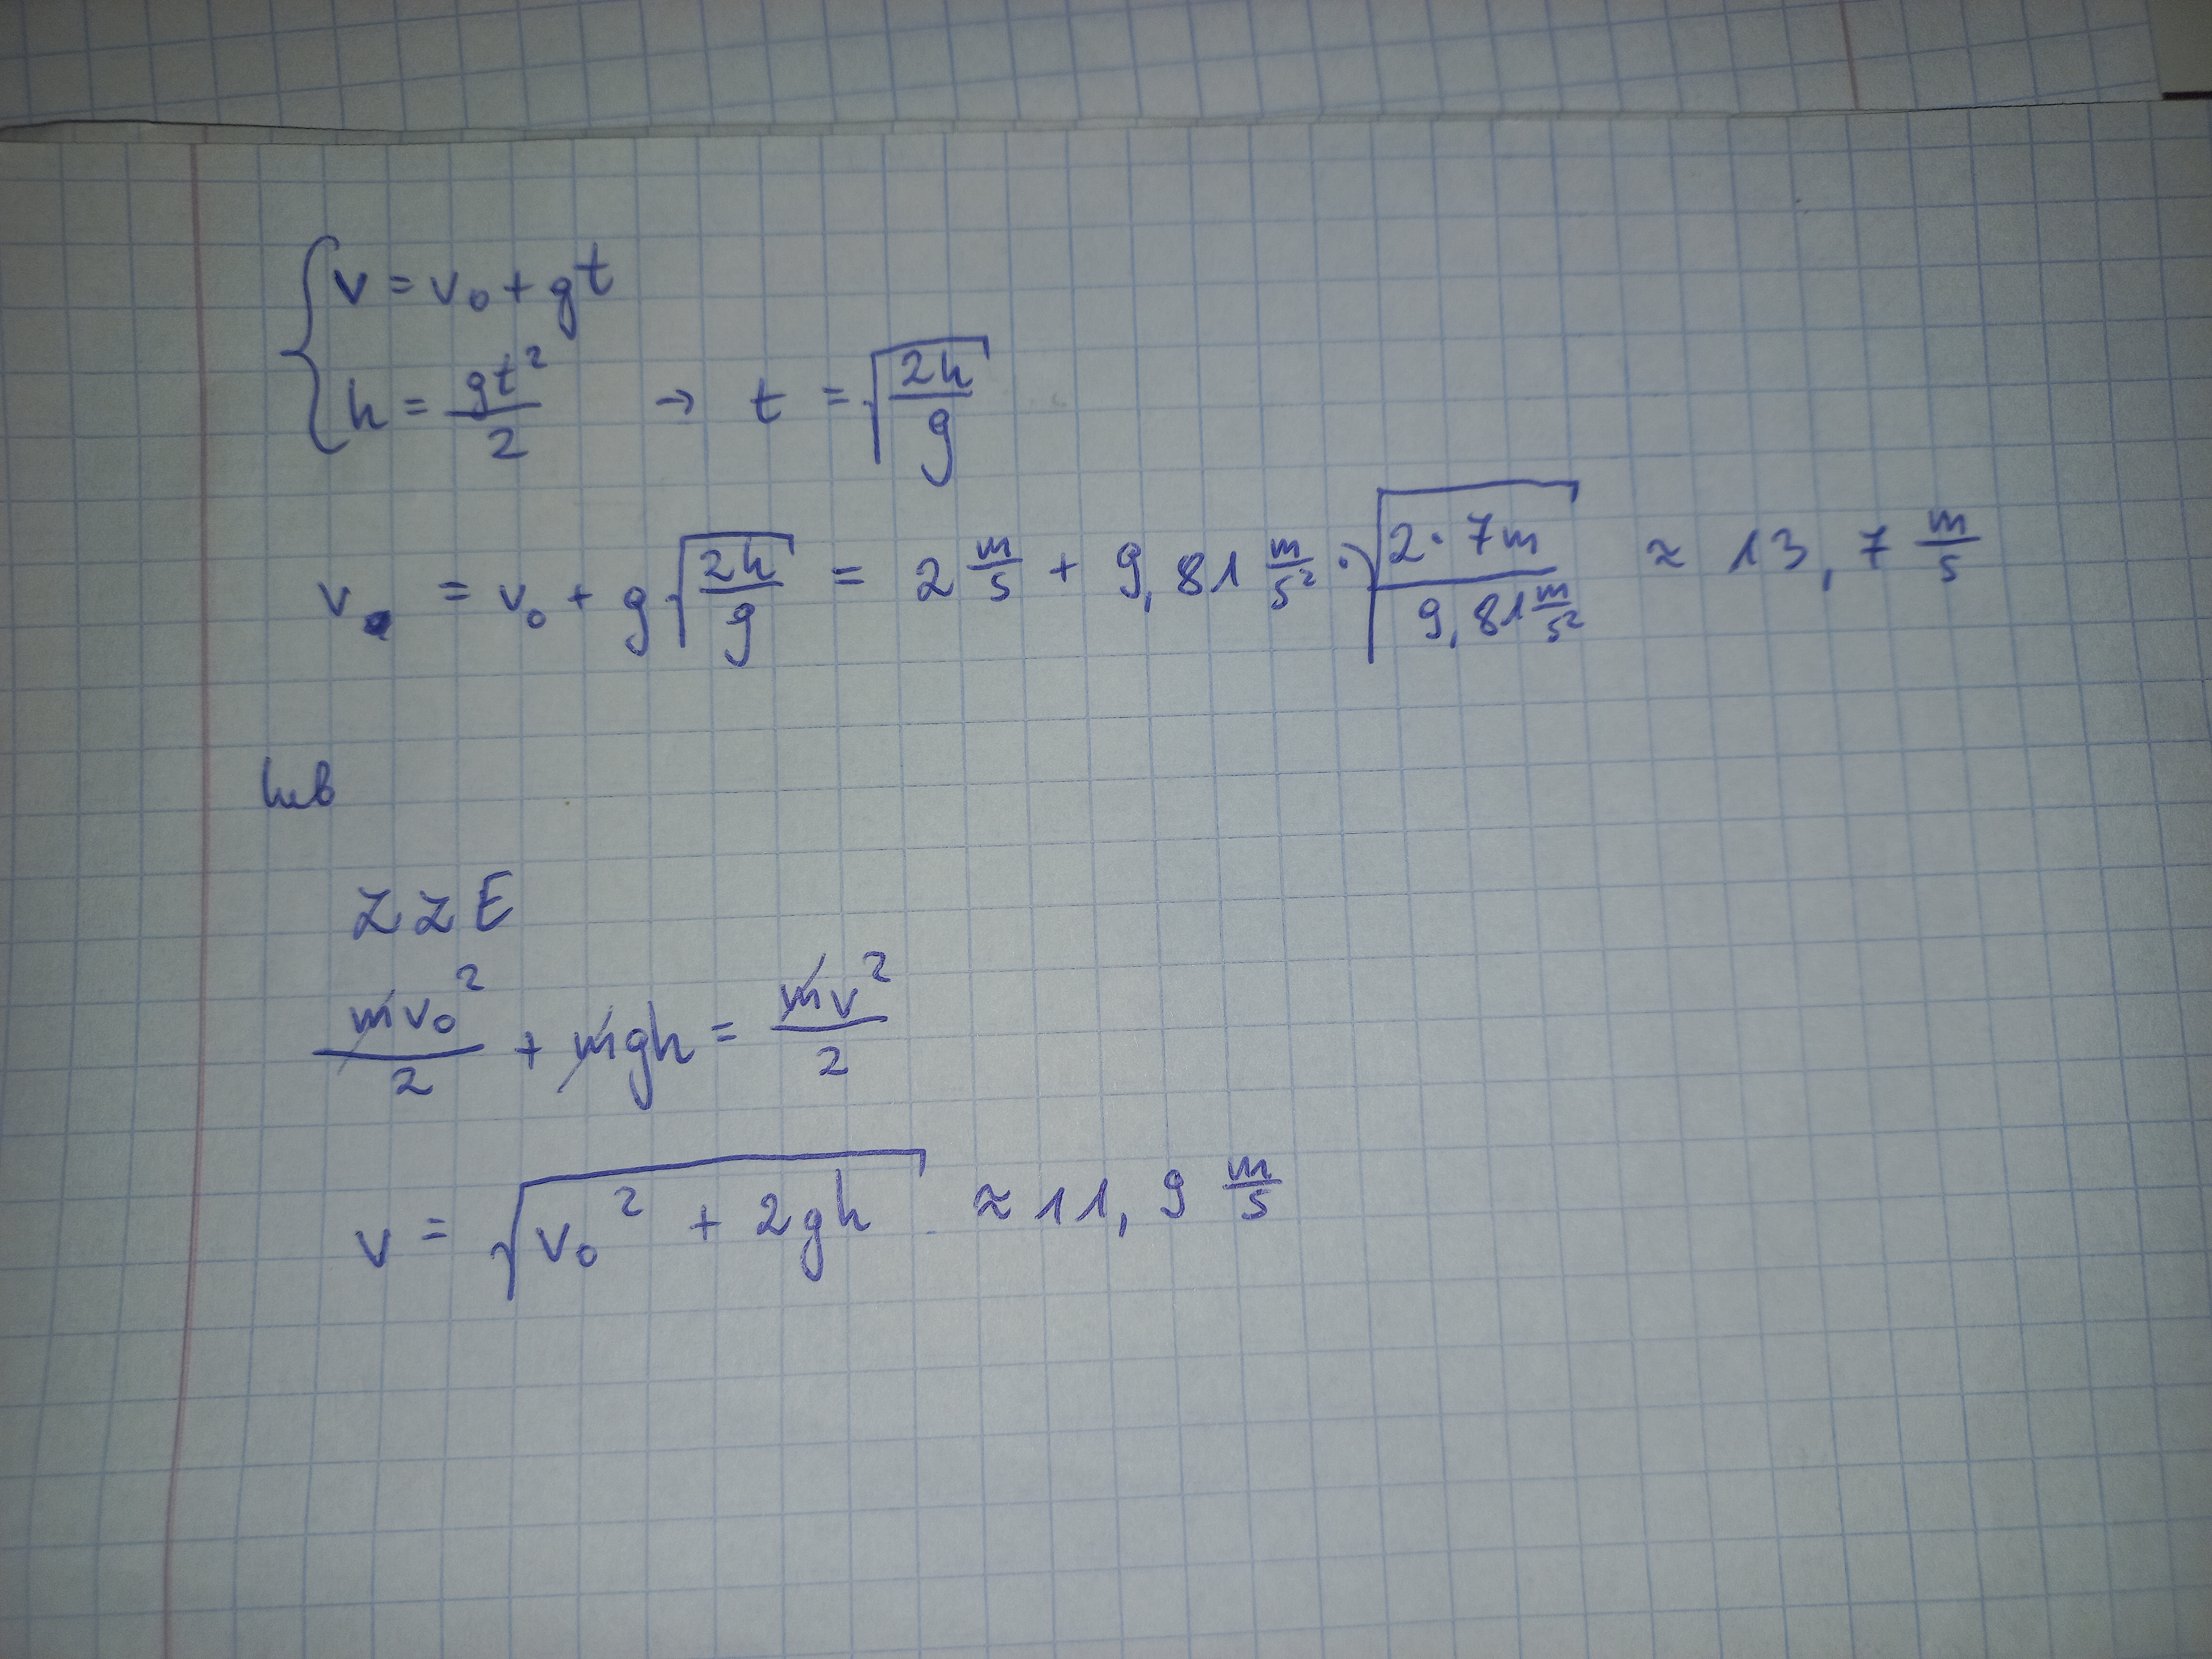 { v = v₀ + gt
h = gt²/2 → t = √(2h/g)
v = v₀ + g√(2h/g) = 2 m/s + 9,81 m/s² · √(2·7m / 9,81 m/s²) ≈ 13,7 m/s
lub
ZZE
mv₀²/2 + mgh = mv²/2
v = √(v₀² + 2gh) ≈ 11,9 m/s